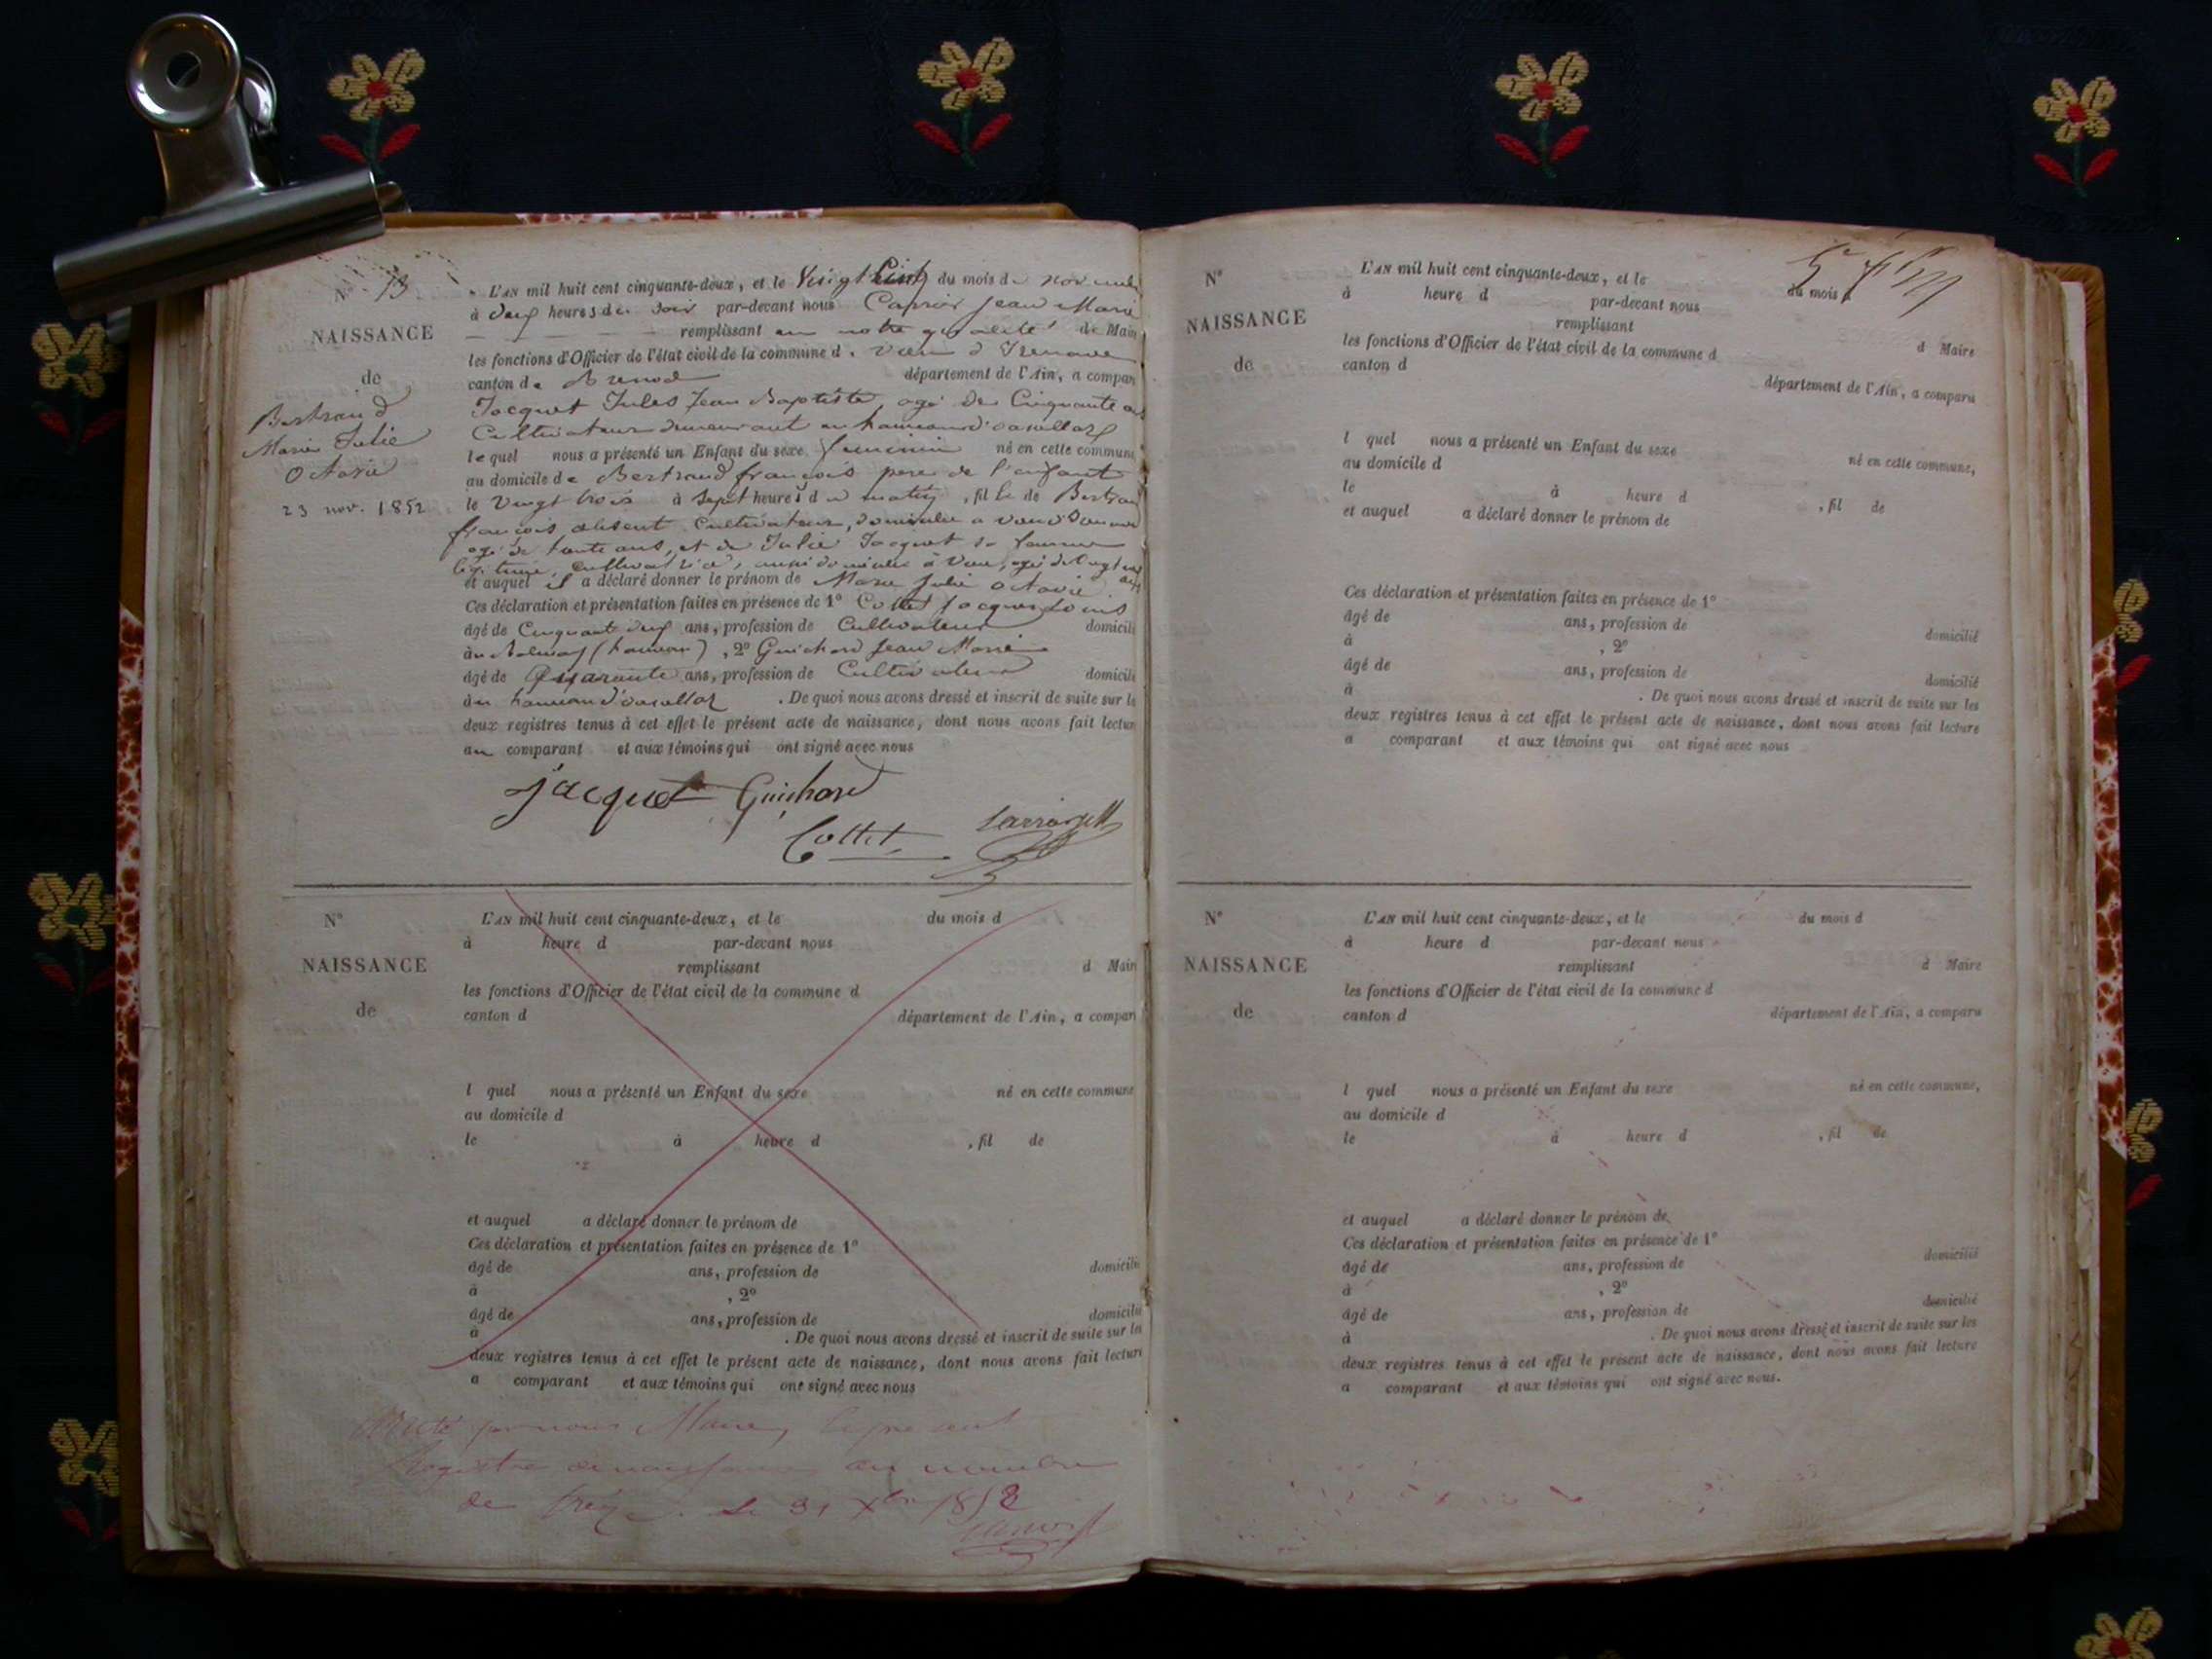 N° 13.
NAISSANCE
de
Bertrand
Marie Julie
Octavie
23 nov. 1852
L'AN mil huit cent cinquante-deux, et le Vingt cinq du mois de novembre
à deux heures du soir par-devant nous Jean Marie
remplissant en notre qualité de Maire
les fonctions d'Officier de l'état civil de la commune de
canton de Brenod département de l'Ain, a comparu
Jacquet Jules Jean Baptiste, agé de Cinquante ans
Cultivateur demeurant au hameau
lequel nous a présenté un Enfant du sexe feminin né en cette commune
au domicile de Bertrand françois pere de l'enfant
le Vingt trois à Sept heures du matin, fille de Bertrand
françois absent Cultivateur, domicilié a
agé de trente ans, et de Julie Jacquet sa femme
légitime, cultivatrice, aussi domiciliée à
et auquel il a déclaré donner le prénom de Marie Julie Octavie
Ces déclaration et présentation faites en présence de 1° Collet Jacques Louis
âgé de Cinquante neuf ans, profession de Cultivateur domicilié
au (hameau), 2° Guichard Jean Marie
âgé de Quarante ans, profession de Cultivateur domicilié
au hameau . De quoi nous avons dressé et inscrit de suite sur le
deux registres tenus à cet effet le présent acte de naissance, dont nous avons fait lecture
au comparant et aux témoins qui ont signé avec nous
Jacquet Guichard
Collet
N°
NAISSANCE
de
L'AN mil huit cent cinquante-deux, et le du mois d
à heure d par-devant nous
remplissant d Mair
les fonctions d'Officier de l'état civil de la commune d
canton d département de l'Ain, a compar
l quel nous a présenté un Enfant du sexe né en cette commune
au domicile d
le à heure d , fil de
et auquel a déclaré donner le prénom de
Ces déclaration et présentation faites en présence de 1°
âgé de ans, profession de domicilié
à , 2°
âgé de ans, profession de domicilié
à . De quoi nous avons dressé et inscrit de suite sur les
deux registres tenus à cet effet le présent acte de naissance, dont nous avons fait lecture
a comparant et aux témoins qui ont signé avec nous
par nous Maire, le présent
Registre de naissance au nombre
de treize. Le 31 Xbre 1852
N°
NAISSANCE
de
L'AN mil huit cent cinquante-deux, et le du mois d
à heure d par-devant nous
remplissant d Maire
les fonctions d'Officier de l'état civil de la commune d
canton d département de l'Ain, a comparu
l quel nous a présenté un Enfant du sexe né en cette commune,
au domicile d
le à heure d , fil de
et auquel a déclaré donner le prénom de
Ces déclaration et présentation faites en présence de 1°
âgé de ans, profession de domicilié
à , 2°
âgé de ans, profession de domicilié
à . De quoi nous avons dressé et inscrit de suite sur les
deux registres tenus à cet effet le présent acte de naissance, dont nous avons fait lecture
a comparant et aux témoins qui ont signé avec nous
N°
NAISSANCE
de
L'AN mil huit cent cinquante-deux, et le du mois d
à heure d par-devant nous
remplissant d Maire
les fonctions d'Officier de l'état civil de la commune d
canton d département de l'Ain, a comparu
l quel nous a présenté un Enfant du sexe né en cette commune,
au domicile d
le à heure d , fil de
et auquel a déclaré donner le prénom de
Ces déclaration et présentation faites en présence de 1°
âgé de ans, profession de domicilié
à , 2°
âgé de ans, profession de domicilié
à . De quoi nous avons dressé et inscrit de suite sur les
deux registres tenus à cet effet le présent acte de naissance, dont nous avons fait lecture
a comparant et aux témoins qui ont signé avec nous.